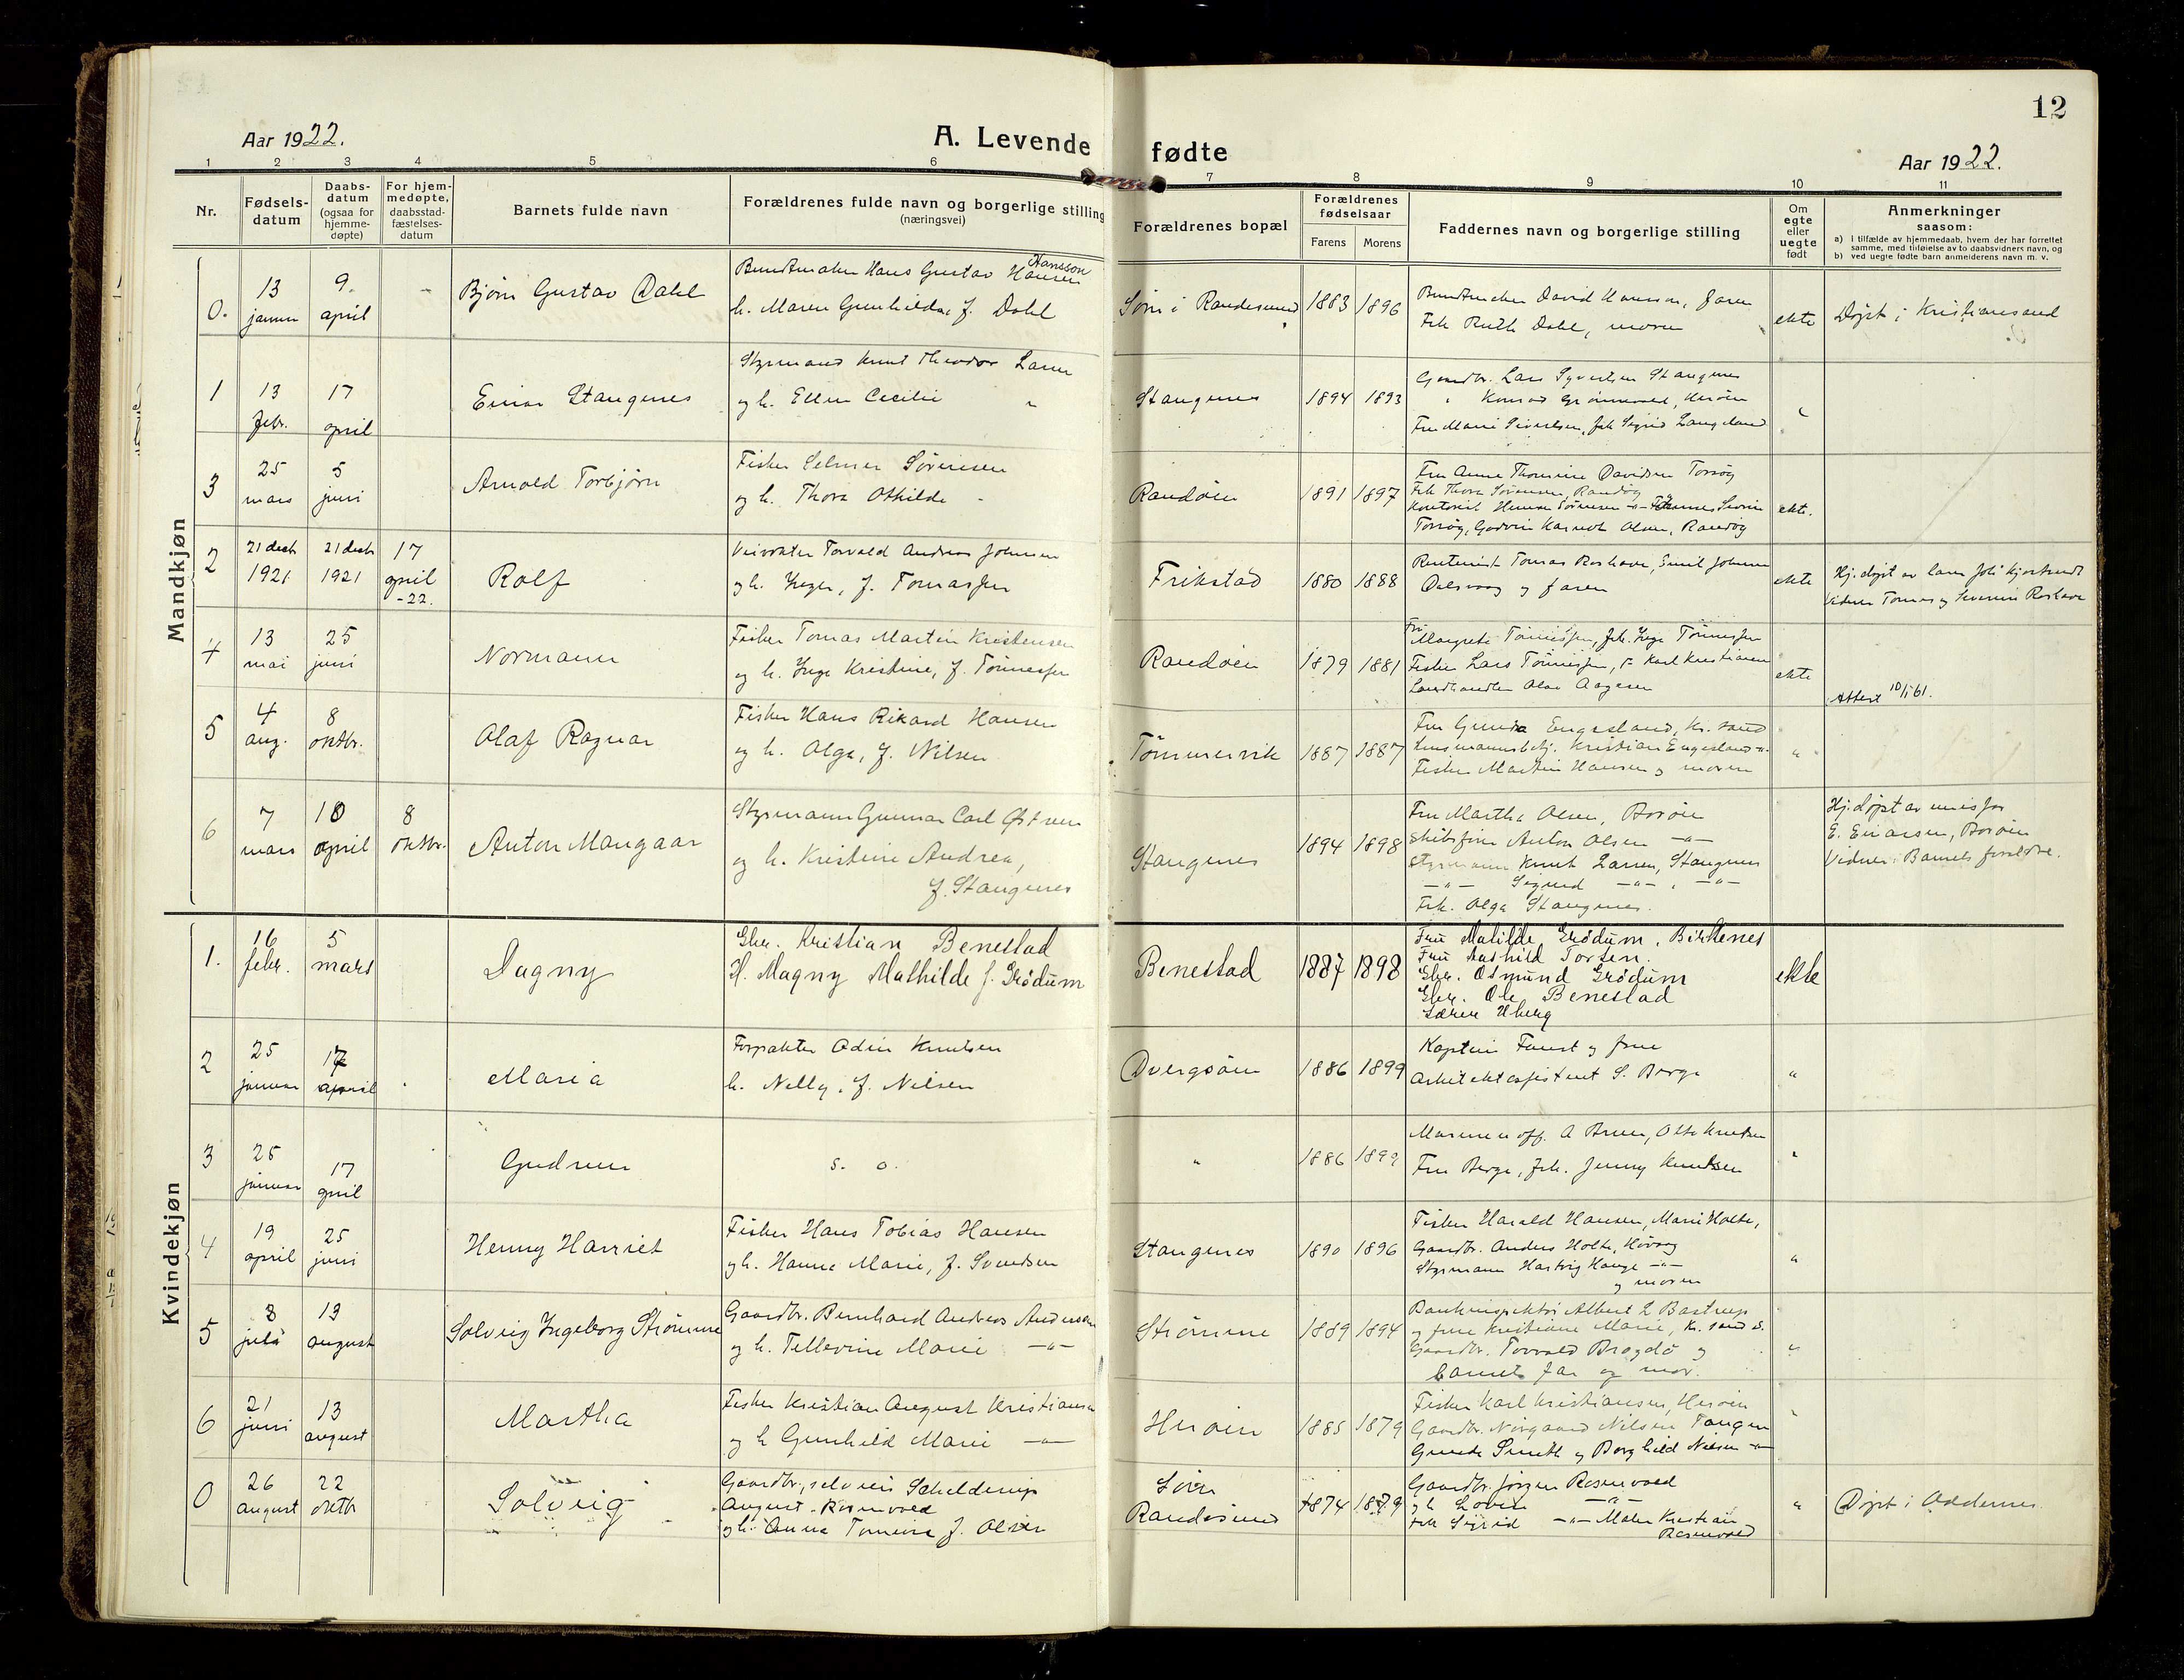 12
Aar 1922.
A. Levende fødte
Aar 1922.
1 2 3 4 5 6 7 8 9 10 11
Nr.
Fødsels-
datum
Daabs-
datum
(ogsaa for
hjemme-
døpte)
For hjem-
medøpte,
daabsstad-
fæstelses-
datum
Barnets fulde navn
Forældrenes fulde navn og borgerlige stilling
(næringsvei)
Forældrenes bopæl
Forældrenes
fødselsaar
Farens Morens
Faddernes navn og borgerlige stilling
Om
egte
eller
uegte
født
Anmerkninger
saasom:
a) I tilfælde av hjemmedaab, hvem der har forrettet
samme, med tilføielse av to daabsvidners navn, og
b) ved uegte fødte barn anmelderens navn m. v.
Mandkjøn
0.
13
januar
9
april
Bjørn Gustav Dahl
Hansson
Buntmaker Hans Gustav Hansen
h. Maren Gunhilda, f. Dahl
Søm i Randesund
1883 1896
Buntmaker David Hansson, faren
Frk Ruth Dahl, moren
ekte
Døpt i Kristiansand
1
13
febr.
17
april
Einar Stangenes
Styrmand Knut Theodor Larsen
og h. Ellen Cecilie "
Stangenes
1894 1893
Gaardbr. Lars Syvertsen Stangenes
" Konrad Grønnevold, Herøen
Fru Marie Sivertsen, frk Sigrid Langeland
"
3
25
mars
5
juni
Arnold Torbjørn
Fisker Selmer Sørensen
og h. Thora Othilde "
Randøen
1891 1897
Fru Anna Thomine Davidsen Torsøy
Frk Thora Sørensen, Randøy
Torsøy, Godvin Karnoth Olsen, Randøy
ekte.
2
21 decb
1921
21 decb
1921
17
april
-22.
Rolf
Veivokter Torvald Andreas Johnsen
og h. Inger, f. Tomassen
Frikstad
1880 1888
Rentenist Tomas Roshave, Emil Johnsen
Dalsvaag og faren
ekte
Vidner Tomas og Severine Roshave
4
13
mai
25
juni
Normann
Fisker Tomas Martin Kristensen
og h. Inga Kristine, f. Tønnessen
Randøen
1879 1881
Fru
Margrete Tønnessen, frk. Inga Tønnessen
Fisker Lars Tønnessen, F. Karl Kristiansen
Landhandler Olav Aagesen
ekte
Attest 10/1 61.
5
4
aug.
8
oktbr.
Olaf Ragnar
Fisker Hans Rikard Hansen
og h. Olga, f. Nilsen
Tømmervik
1887 1887
Fru Gunda Engesland, Kr. sand
Lensmannsbetj. Kristian Engesland -"-
Fisker Martin Hansen og moren
"
6
7
mars
10
april
8
oktbr.
Anton Mangaar
Styrmann Gunnar Carl Østreen
og h. Kristine Andrea,
f. Stangenes
Stangenes
1894 1898
Fru Martha Olsen, Borøen
Skibsfører Anton Olsen -"-
Styrmann Knut Larsen, Stangenes
-"- Sigurd -"- , -"-
Frk. Olga Stangenes.
Hj.døpt av emisfor
E. Einarsen, Borøen
Vidner: Barnets forældre.
Kvindekjøn
1.
16
febr.
5
mars
Dagny
Gbr. Kristian Benestad
H. Magny Mathilde f. Grødum
Benestad
1887 1898
Fru Matilde Grødum, Birkenes
Fru Aashild Torsen.
Gbr. Osmund Grødum
Gbr. Ole Benestad
Lærer Uberg
ekte
2
25
januar
17
april
Maria
Forpakter Odin Knutsen
h. Nelly, f. Nilsen
Dvergsøen
1886 1899
Kaptein Faust og frue
Arkitektassistent S. Berge
"
3
25
januar
17
april
Gudrun
s. o.
"
1886 1899
Marineoff. A Bruun, Olte Knutsen
Fru Berge, frk. Jenny Knudsen
"
4
19
april
25
juni
Henny Harriet
Fisker Hans Tobias Hansen
og h. Hanna Marie, f. Svendsen
Stangenes
1890 1896
Fisker Harald Hansen, Marie Holte,
Gaardbr. Anders Holte, Høvaag
Styrmann Hartvig Hauge -"-
og moren
"
5
8
juli
13
august
Solveig Ingeborg Strømme
Gaardbr. Bernhard Andreas Andersen
og h. Tellevine Marie -"-
Strømme
1889 1894
Bankinspektør Albert L Bastrup
og frue Kristiane Marie, Kr. sand S.
Gaardbr. Torvald Bragdø og
barnets far og mor.
"
6
21
juni
13
august
Martha
Fisker Kristian August Kristiansen
og h Gunhild Marie -"-
Herøen
1885 1879
Fisker Karl Kristiansen, Herøen
Gaardbr. Norgaard Nilsen Tangen
Gunda Smith og Borghild Nilsen -"-
"
0
26
august
22
oktb
Solveig
Gaardbr., selveier Schelderup
August Rosenvold
og h. Anna Tomine f. Olsen
Søm
Randesund
1874 1879
Gaardbr. Jørgen Rosenvold
og h Lovise -"-
Frk Sigrid -"- Maler Kristian
Rosenvold
"
Døpt i Oddernes